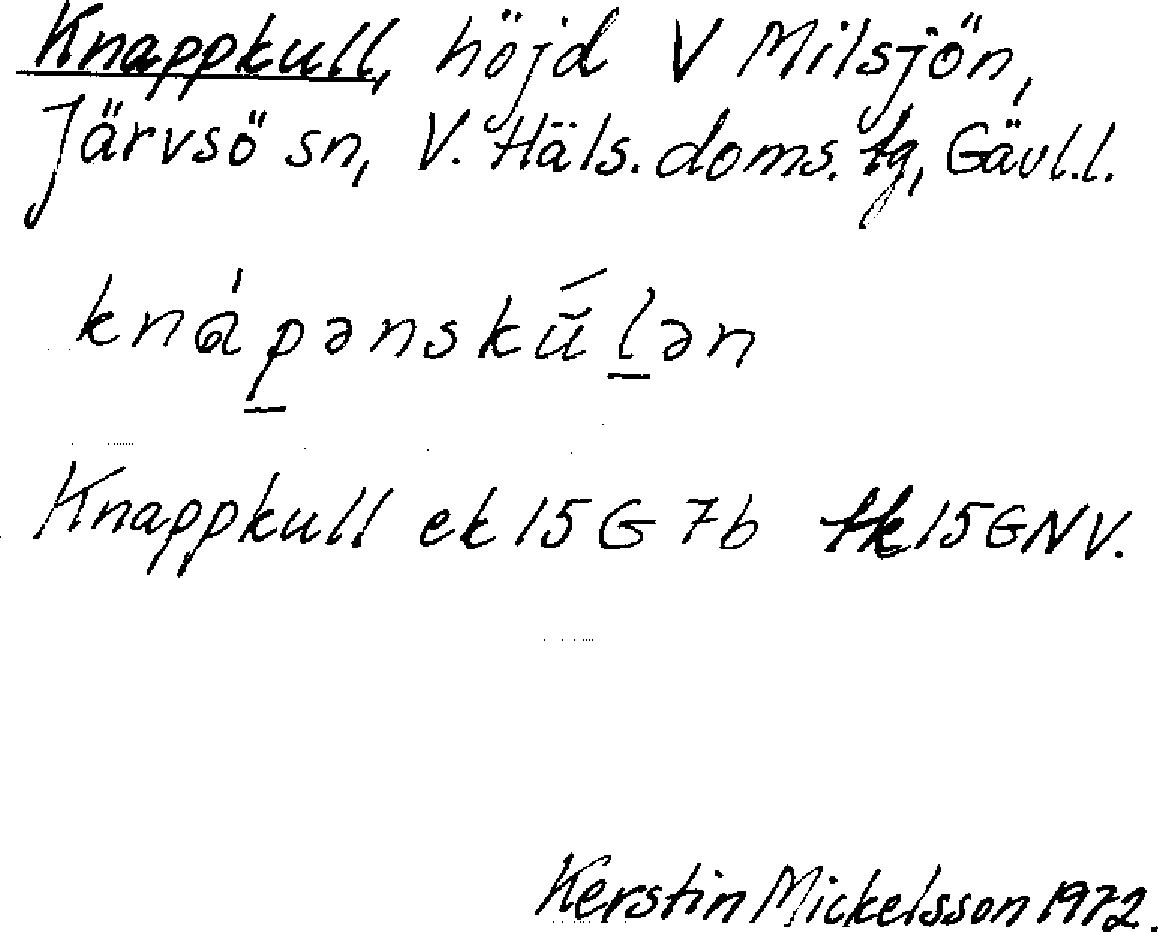 Knappkull, höjd V Milsjön,
Järvsö sn, V. Häls. doms. tg, Gävl.l.
knáp̱ənskŭ́ḻən
Knappkull ek 15 G 7b tk 15 G NV.
Kerstin Mickelsson 1972.